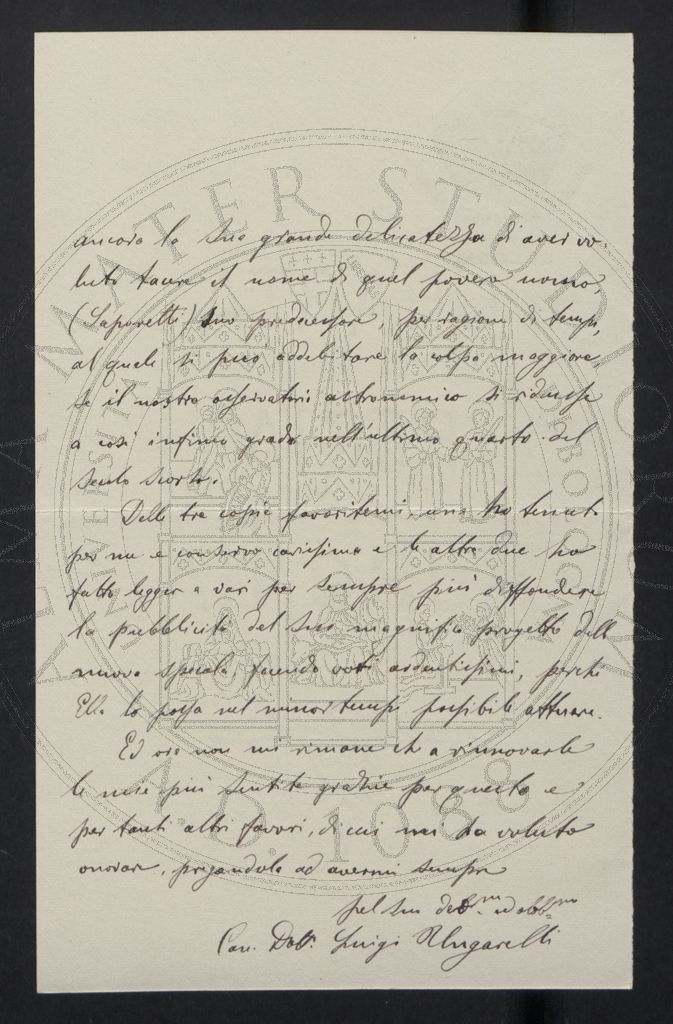 ancora la sua grande delicatezza di aver vo-
luto tacere il nome di quel povero uomo,
(Saporetti) suo predecessore, per ragione di tempo,
al quale si può addebitare la colpa maggiore,
se il nostro osservatorio astronomico si ridusse
a così infimo grado nell'ultimo quarto del
secolo scorso.
Delle tre copie favoritemi, una ho tenuto
per me e conservo carissima e le altre due ho
fatto leggere a vari per sempre più diffondere
la pubblicità del suo magnifico progetto della
nuova specola, facendo voti ardentissimi, perché
Ella lo possa nel minor tempo possibile attuare.
Ed ora non mi rimane che a rinnovarle
le mie più sentite grazie per questo e
per tanti altri favori, di cui mi ha voluto
onorare, pregandola ad avermi sempre
pel suo dev.mo ed obb.mo
Cav. Dott. Luigi Ungarelli
ALMA MATER STUDIORUM
A.D. 1088